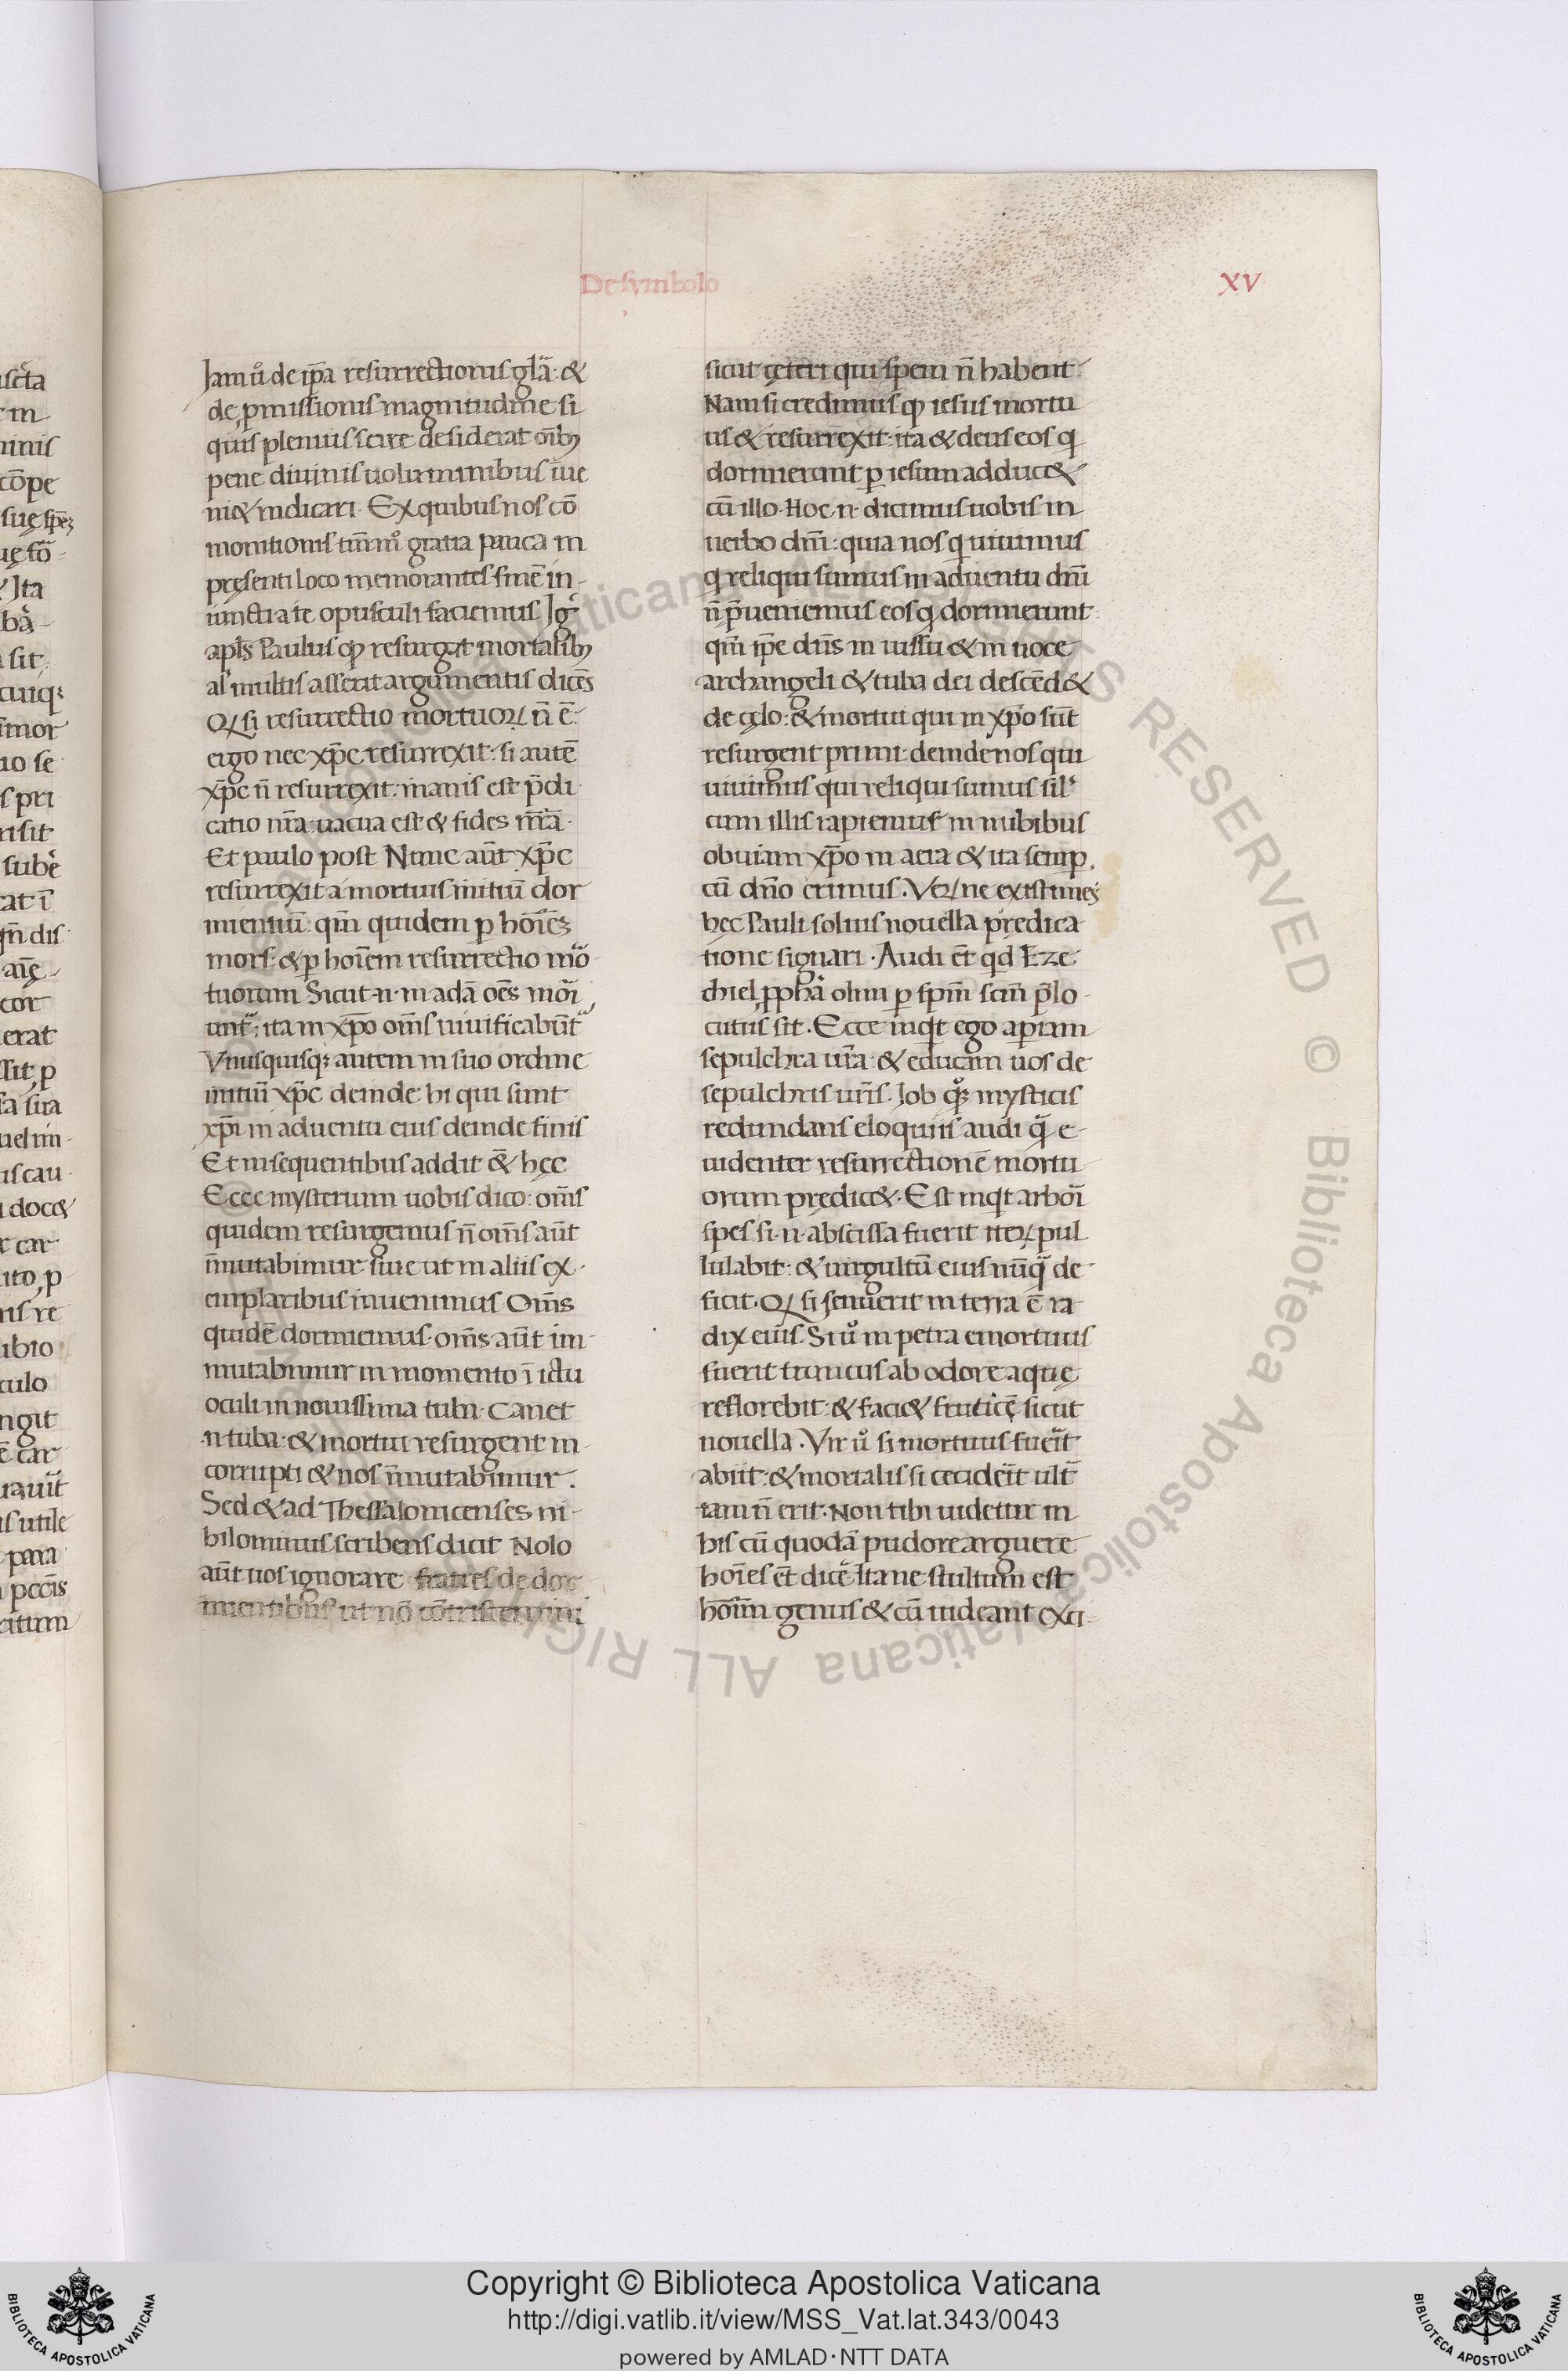 De symbolo
XV
Jam uͦ de ip̄a resurrectionis gl̄a: &
de ꝓmissionis magnitudine si
quis plenius scire desiderat oīb9
pene diuinis uoluminibus īue
ni& indicari. Ex quibus nos cō
monitionis tm̄mͦ gratia pauca in
pręsenti loco memorantes finē in-
iuncti a te opusculi faciemus Jgͥ
apl̄s Paulus ꝙ resurgat mortalib9
al' multis asserit argumentis dicēs
Qꝛ si resurrectio mortuoꝝ n̄ ē:
ergo nec xp̄c resurrexit. si autē
xp̄c n̄ resurrexit: inanis est p̄di-
catio nr̄a. uacua est & fides nr̄a.
Et paulo post Nunc aūt xp̄c
resurrexit a mortuis initiū dor
mientiū: qm̄ quidem ꝑ hoīēꝫ
mors: & ꝑ hoīem resurrectio moͬ-
tuorum Sicut .n. in adā oēs moͬi
unt͛: ita in xp̄o om̄s uiuificabūt͛
Vnusquisqꝫ autem in suo ordine
initiū xp̄c deinde hi qui sunt
xp̄i in aduentu eius deinde finis
Et īsequentibus addit & hęc
Ecce mysterium uobis dico: om̄s
quidem resurgemus n̄ om̄s aūt
īmutabimur siue ut in aliis ex-
emplaribus inuenimus Om̄s
quidē dormiemus. om̄s aūt im-
mutabimur in momento ī ictu
oculi in nouissima tuba. Canet
.n. tuba. & mortui resurgent in-
corrupti & nos īmutabimur.
Sed & ad Thessalonicenses ni-
hilominus scribens dicit Nolo
aūt uos ignorare fratres de dor
mientibus ut nō cōtristemini
sicut cęteri qui spem n̄ habent.
Nam si credimus ꝙ iesus mortu
us & resurrexit: ita & deus eos q̄
dormierunt ꝑ iesum adduc&
cū illo. Hoc .n. dicimus uobis in
uerbo dn̄i: quia nos q̄ uiuimus
q̄ reliqui sumus in aduentu dn̄i
n̄ p̄ueniemus eos q̄ dormierunt.
qm̄ ip̄e dn̄s in iussu & in uoce
archangeli & tuba dei descēd&
de cęlo: & mortui qui in xp̄o sūt
resurgent primi. deinde nos qui
uiuimus qui reliqui sumus sil'
cum illis rapiemur in nubibus
obuiam xp̄o in aera & ita semꝑ
cū dn̄o erimus. Veꝝ ne existimes
hęc Pauli solius nouella prędica
tione signari. Audi ēt qd Eze
chiel ꝓph̄a olim ꝑ spm̄ scm̄ p̄lo-
cutus sit. Ecce inqͥt ego aperiam
sepulchra ur̄a. & educam uos de
sepulchris ur̄is. Job qͦqꝫ mysticis
redundans eloquiis audi q̄ e-
uidenter resurrectionē mortu
orum prędic&. Est inqͥt arboͬi
spes si .n. abscissa fuerit iteꝝ pul
lulabit: & uirgultū eius nūq̄ de
ficit. Qꝛ si senuerit in terra ē ra
dix eius. Si uͦ in petra emortuus
fuerit truncus ab odore aquę
reflorebit: & faci& fruticē sicut
nouella. Vir uͦ si mortuus fuerit
abiit: & mortalis si ceciderīt ult͛
iam n̄ erit. Non tibi uidetur in
his cū quodā pudore arguere
hoīes ēt dicē. Itane stultum est
hoīm genus & cū uideant exci-
Copyright © Biblioteca Apostolica Vaticana
http://digi.vatlib.it/view/MSS_Vat.lat.343/0043
powered by AMLAD·NTT DATA